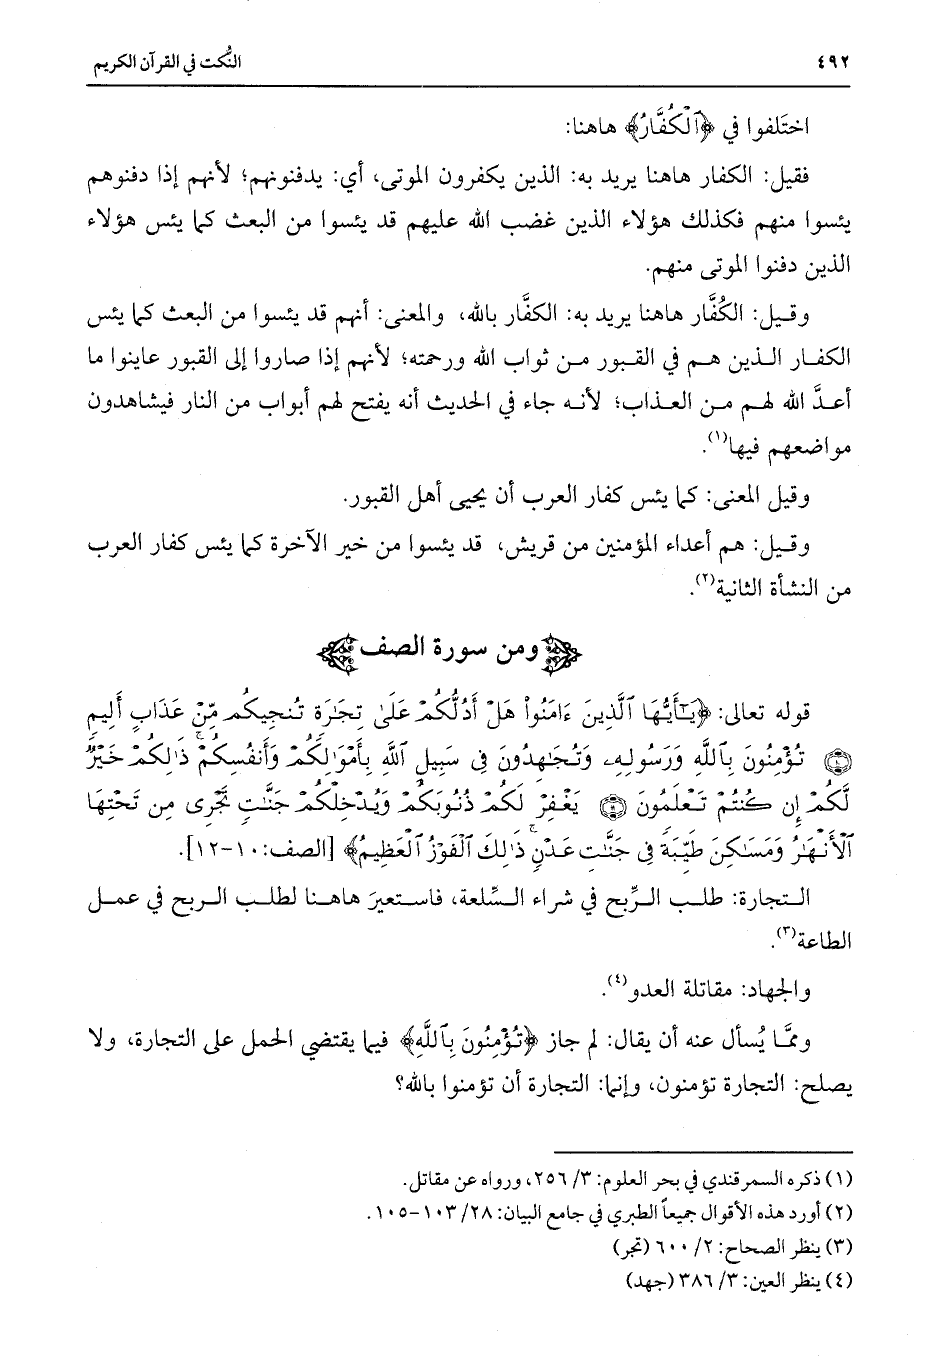 ٤٩٢ النُّكت في القرآن الكريم
اختَلفوا في ﴿ٱلْكُفَّارُ﴾ هاهنا:
فقيل: الكفار هاهنا يريد به: الذين يكفرون الموتى، أي: يدفنونهم؛ لأنهم إذا دفنوهم
يئسوا منهم فكذلك هؤلاء الذين غضب الله عليهم قد يئسوا من البعث كما يئس هؤلاء
الذين دفنوا الموتى منهم.
وقيل: الكُفَّار هاهنا يريد به: الكفَّار بالله، والمعنى: أنهم قد يئسوا من البعث كما يئس
الكفار الذين هم في القبور من ثواب الله ورحمته؛ لأنهم إذا صاروا إلى القبور عاينوا ما
أعدَّ الله لهم من العذاب؛ لأنه جاء في الحديث أنه يفتح لهم أبواب من النار فيشاهدون
مواضعهم فيها(١).
وقيل المعنى: كما يئس كفار العرب أن يحيى أهل القبور.
وقيل: هم أعداء المؤمنين من قريش، قد يئسوا من خير الآخرة كما يئس كفار العرب
من النشأة الثانية(٢).
ومن سورة الصف
قوله تعالى: ﴿يَٰٓأَيُّهَا ٱلَّذِينَ ءَامَنُوا۟ هَلْ أَدُلُّكُمْ عَلَىٰ تِجَٰرَةٍ تُنجِيكُم مِّنْ عَذَابٍ أَلِيمٍ
۝١٠ تُؤْمِنُونَ بِٱللَّهِ وَرَسُولِهِۦ وَتُجَٰهِدُونَ فِى سَبِيلِ ٱللَّهِ بِأَمْوَٰلِكُمْ وَأَنفُسِكُمْ ۚ ذَٰلِكُمْ خَيْرٌ
لَّكُمْ إِن كُنتُمْ تَعْلَمُونَ ۝١١ يَغْفِرْ لَكُمْ ذُنُوبَكُمْ وَيُدْخِلْكُمْ جَنَّٰتٍ تَجْرِى مِن تَحْتِهَا
ٱلْأَنْهَٰرُ وَمَسَٰكِنَ طَيِّبَةً فِى جَنَّٰتِ عَدْنٍ ۚ ذَٰلِكَ ٱلْفَوْزُ ٱلْعَظِيمُ﴾ [الصف: ١٠-١٢].
التجارة: طلب الرِّبح في شراء السِّلعة، فاستعيرَ هاهنا لطلب الربح في عمل
الطاعة(٣).
والجهاد: مقاتلة العدو(٤).
وممَّا يُسأل عنه أن يقال: لم جاز ﴿تُؤْمِنُونَ بِٱللَّهِ﴾ فيما يقتضي الحمل على التجارة، ولا
يصلح: التجارة تؤمنون، وإنما: التجارة أن تؤمنوا بالله؟
(١) ذكره السمرقندي في بحر العلوم: ٣/ ٢٥٦، ورواه عن مقاتل.
(٢) أورد هذه الأقوال جميعاً الطبري في جامع البيان: ٢٨/ ١٠٣-١٠٥.
(٣) ينظر الصحاح: ٢/ ٦٠٠ (تجر)
(٤) ينظر العين: ٣/ ٣٨٦ (جهد)